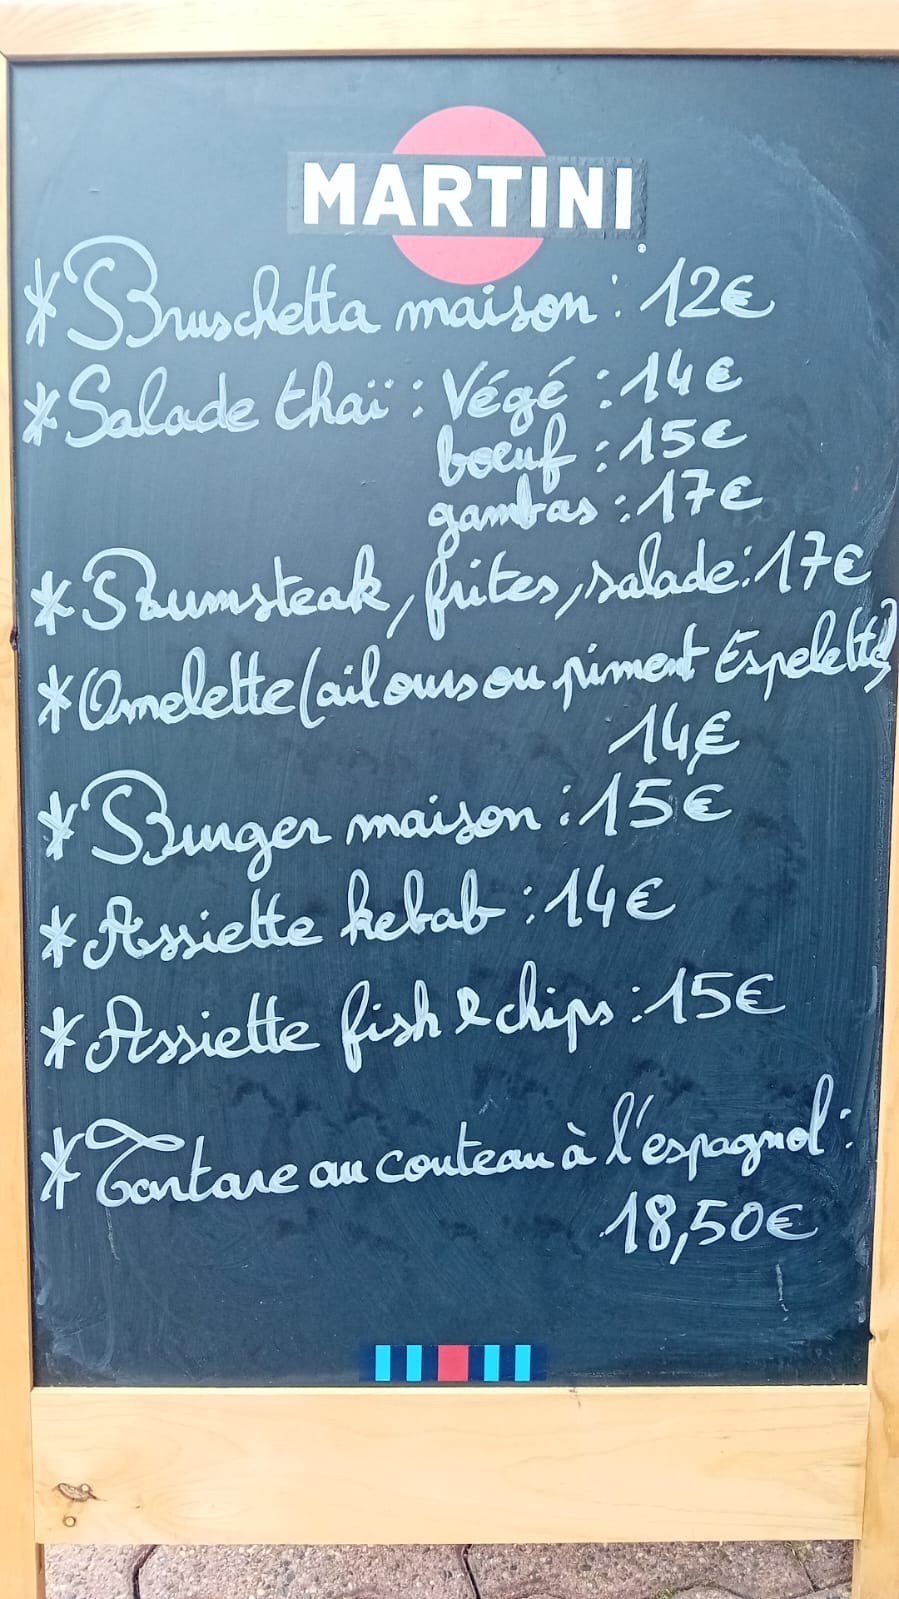 MARTINI
* Bruschetta maison : 12€
* Salade thaï : Végé : 14€
bœuf : 15€
gambas : 17€
* Rumsteak, frites, salade : 17€
* Omelette (ail ours ou piment Espelette)
14€
* Burger maison : 15€
* Assiette kebab : 14€
* Assiette fish & chips : 15€
* Tartare au couteau à l'espagnol :
18,50€